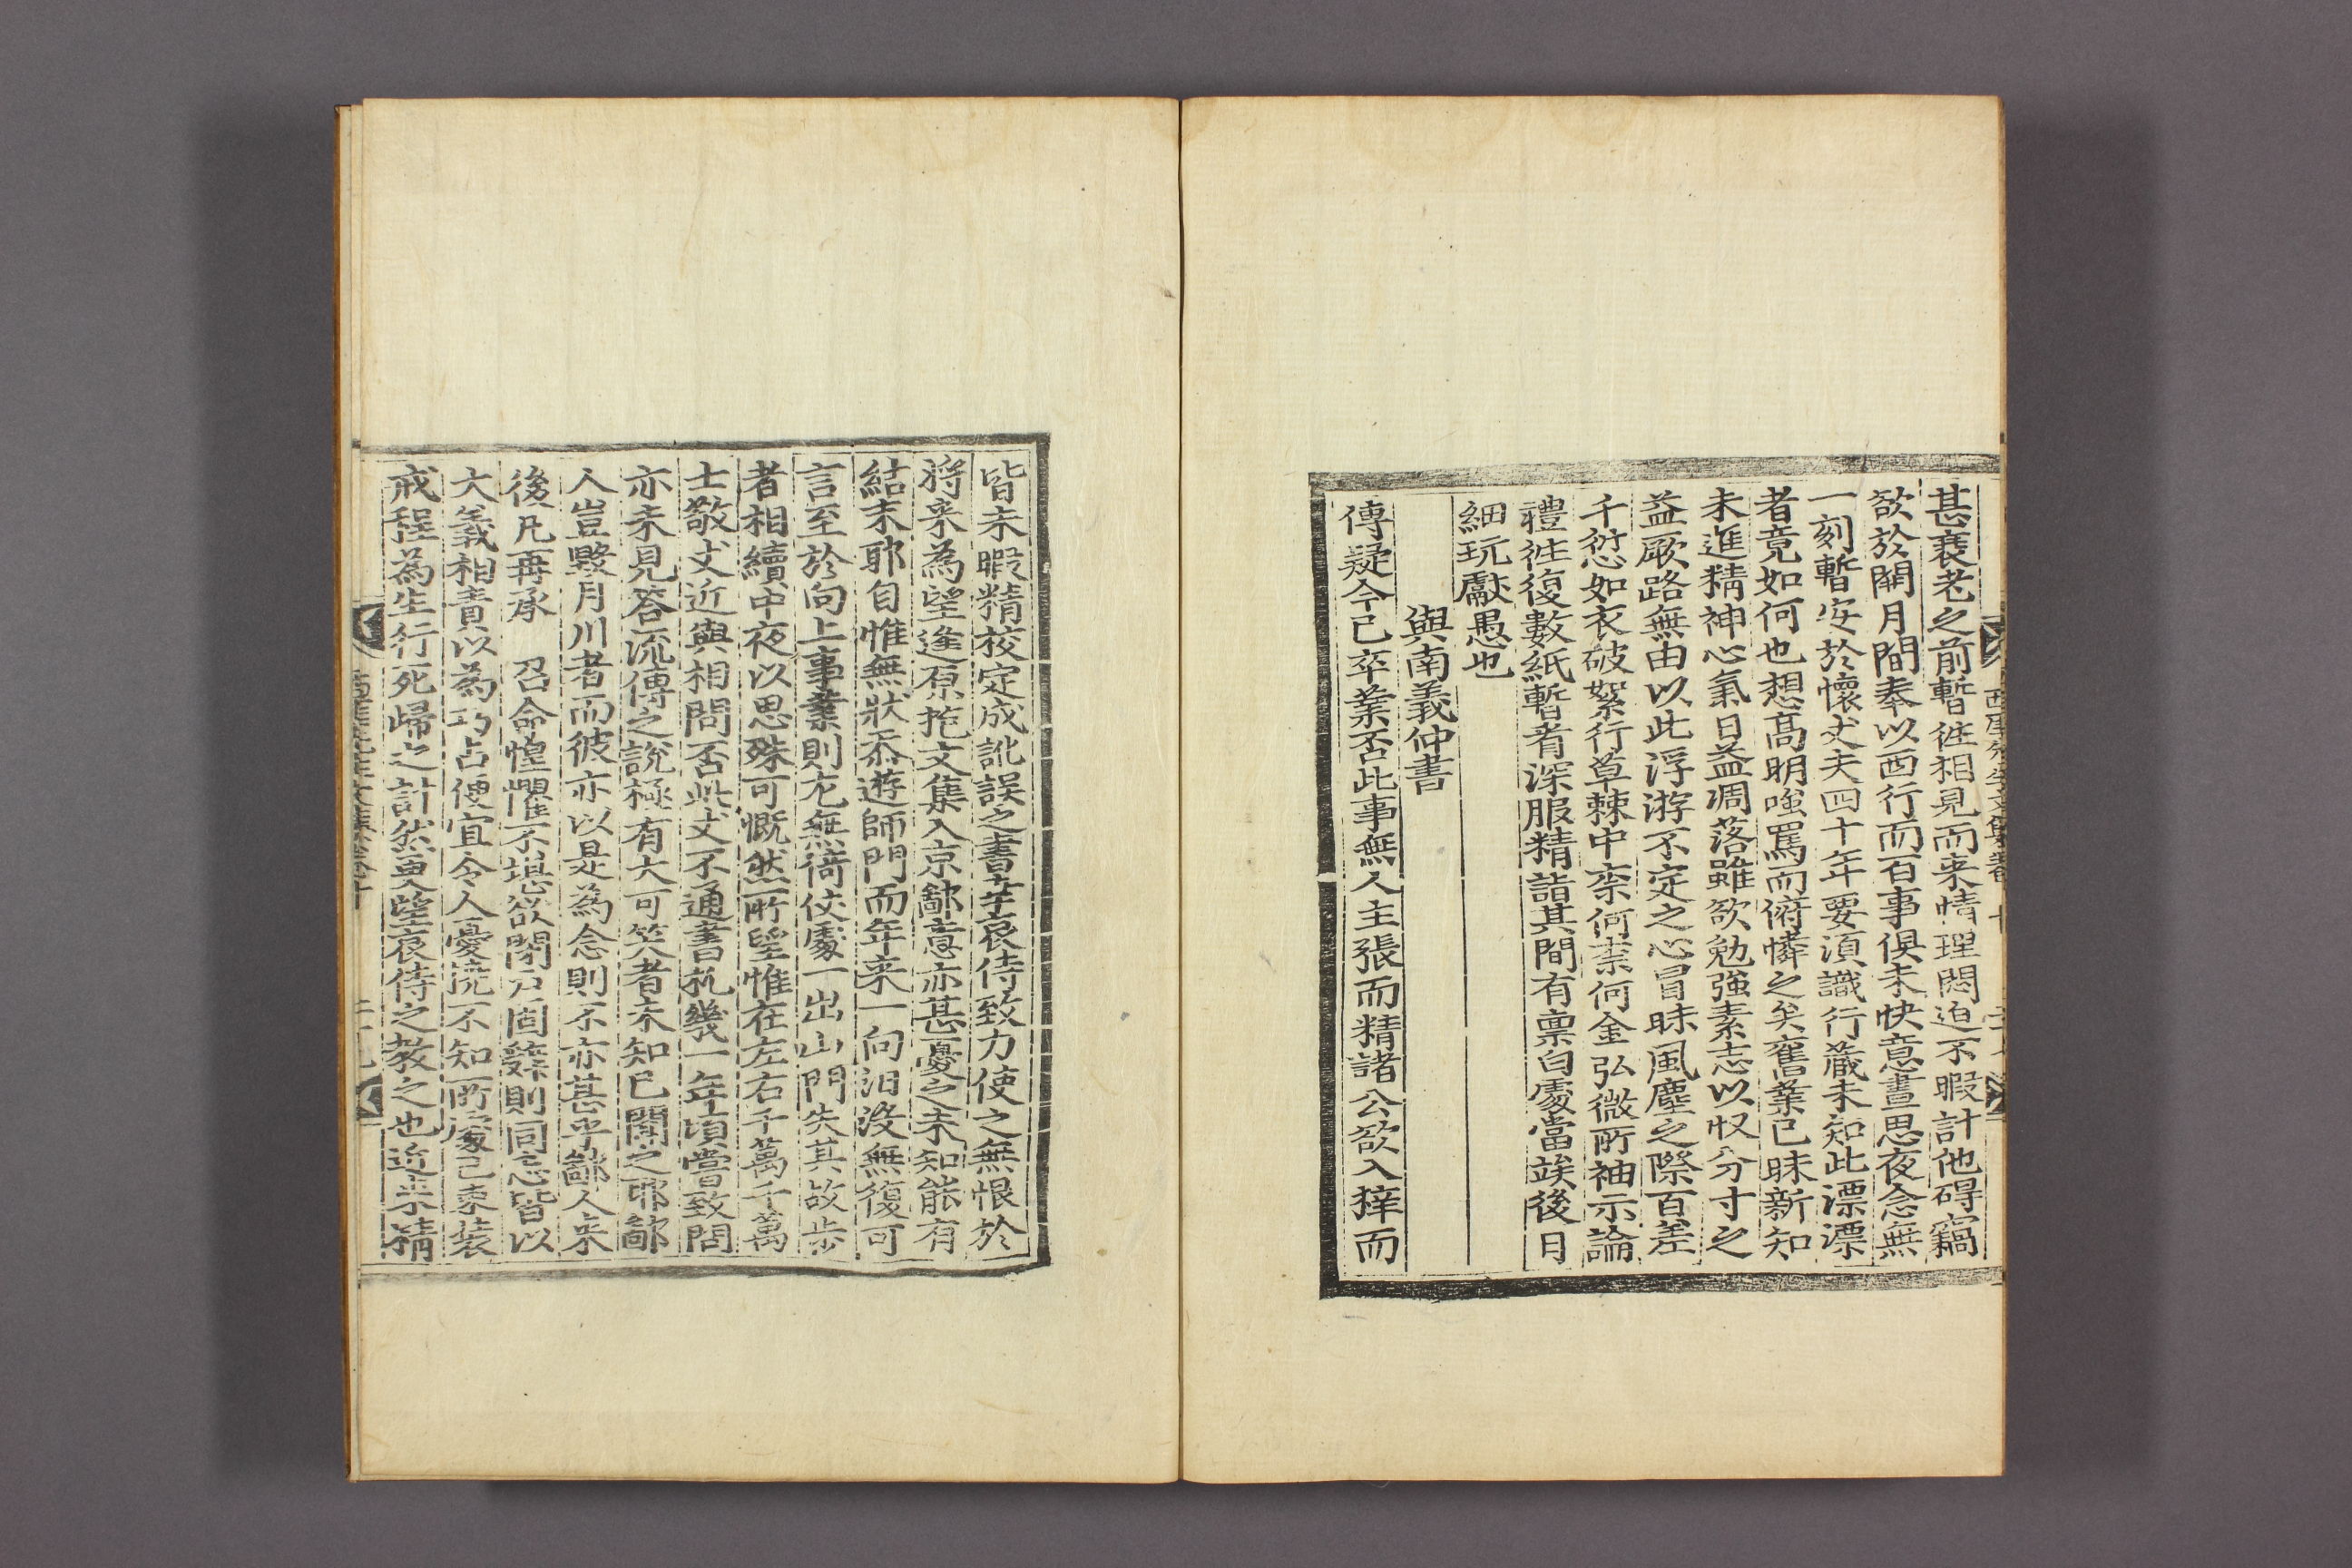 甚衰老之前暫徃相見而来情理悶迫不暇計他碍竊
欲於開月間奉以西行而百事俱未快意晝思夜念無
一刻暫安於懷丈夫四十年要須識行藏未知此漂漂
者竟如何也想髙明嗤罵而俯憐之矣舊業已昧新知
未進精神心氣日益凋落雖欲勉強素志以收分寸之
益厥路無由以此浮游不定之心冒昧風塵之際百差
千愆如衣破絮行草棘中柰何柰何金弘微所袖示論
禮徃復數紙暫看深服精詣其間有禀白處當竢後日
細玩獻愚也
與南義仲書
傳疑今已卒業否此事無人主張而精諸公欲入梓而
皆未暇精校定成訛誤之書幸哀侍致力使之無恨於
将来為望逄原抱文集入京鄙意亦甚憂之未知能有
結末耶自惟無狀忝遊師門而年来一向汨没無復可
言至於向上事業則尤無倚仗處一出山門失其故步
者相續中夜以思殊可慨然所望惟在左右千萬千萬
士敬丈近與相問否此丈不通書札幾一年頃嘗致問
亦未見答流傳之說極有大可笑者未知已聞之耶鄙
人豈斁月川者而彼亦以是為念則不亦甚乎鄙人来
後凡再承 召命惶懼不堪欲閉户固辭則同志皆以
大義相責以為巧占便宜令人憂𢥠不知所處已束装
戒程為生行死歸之計然更望哀侍之教之也近来精